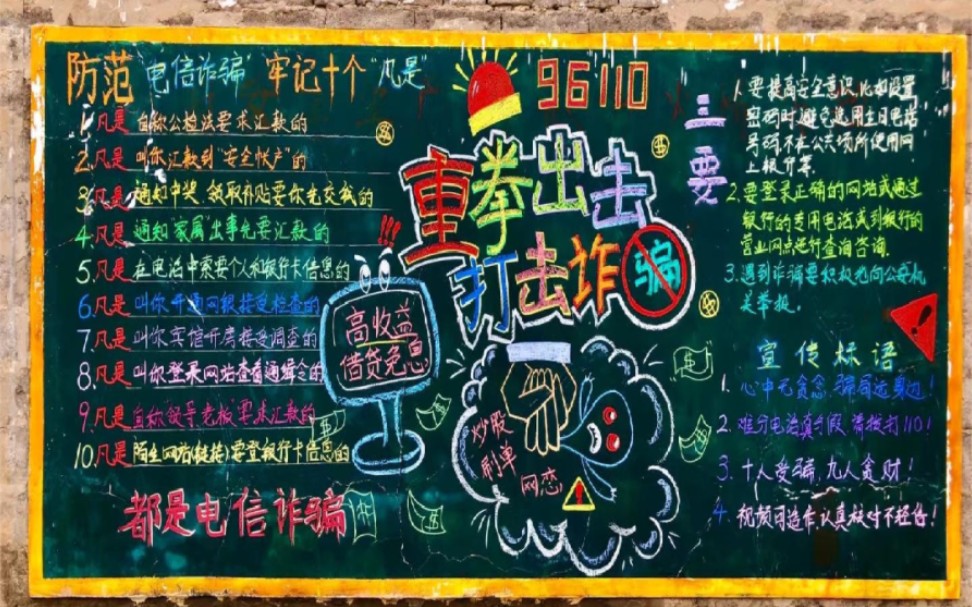 防范电信诈骗"牢记十个"凡是"
1.凡是自称公检法要求汇款的
2.凡是叫你汇款到"安全帐户"的
3.凡是通知中奖、领取补贴要你先交钱的
4.凡是通知"家属"出事先要汇款的
5.凡是在电话中索要个人和银行卡信息的
6.凡是叫你开通网银接受检查的
7.凡是叫你宾馆开房接受调查的
8.凡是叫你登录网站查看通缉令的
9.凡是自称"领导、老板"要求汇款的
10.凡是陌生网站(链接)要登银行卡信息的
都是电信诈骗
96110
重拳出击
打击诈骗
!!!
高收益
借贷免息
炒股
刷单
网恋
三要
1.要提高安全意识,比如设置
密码时避免选用生日电话
号码,不在公共场所使用网
上银行等.
2.要登录正确的网站或通过
银行的专用电话或到银行的
营业网点进行查询咨询.
3.遇到诈骗要积极先向公安机
关举报.
宣传标语
1.心中无贪念,骗局远身边!
2.难分电话真与假,请拨打110!
3.十人受骗,九人贪财!
4.视频可造作认真核对不轻信!